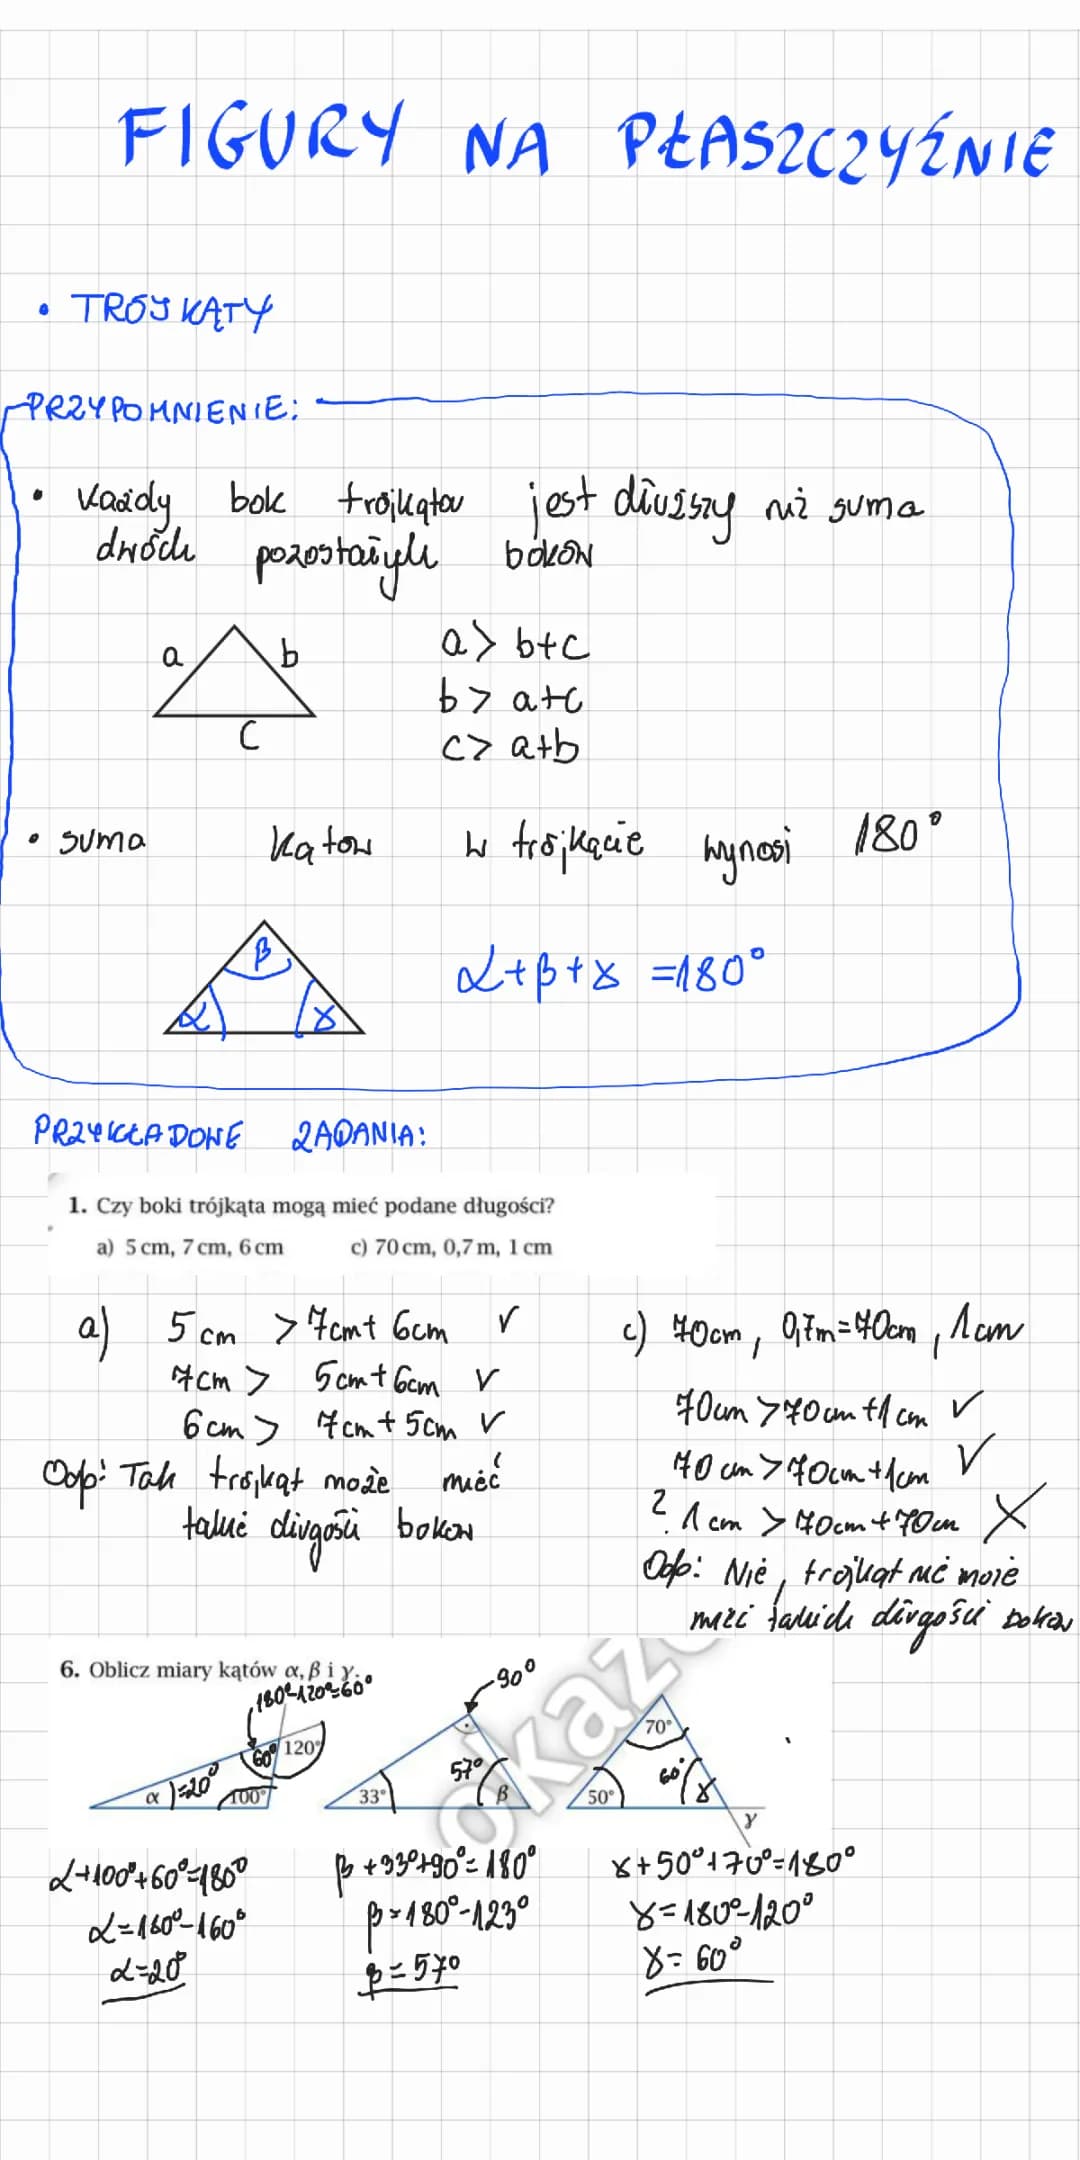 FIGURY NA PŁASZCZYŹNIE
• TRÓJKĄTY
PRZYPOMNIENIE:
• Każdy bok trójkątów jest dłuższy niż suma
dwóch pozostałych boków
a b
c
a > b+c
b > a+c
c > a+b
• suma kątów w trójkącie wynosi 180°
β
α γ
α+β+γ =180°
PRZYKŁADOWE ZADANIA:
1. Czy boki trójkąta mogą mieć podane długości?
a) 5 cm, 7 cm, 6 cm c) 70 cm, 0,7 m, 1 cm
a) 5 cm > 7cm+ 6cm ✓
7cm > 5cm+6cm ✓
6cm > 7cm+5cm ✓
Odp: Tak trójkąt może mieć
takie długości boków
c) 70cm, 0,7m=70cm, 1cm
70cm >70cm+1cm ✓
70cm >70cm+1cm ✓
? 1cm > 70cm+70cm X
Odp: Nie, trójkąt nie może
mieć takich długości boków
okaz
6. Oblicz miary kątów α, β i γ.
180°-120°=60°
60° 120°
α =20° 100°
90°
57°
33° β
70°
60°
50° γ
γ
α+100°+60°=180°
α=180°-160°
α=20°
β+33°+90°=180°
β=180°-123°
β=57°
γ+50°+70°=180°
γ=180°-120°
γ=60°